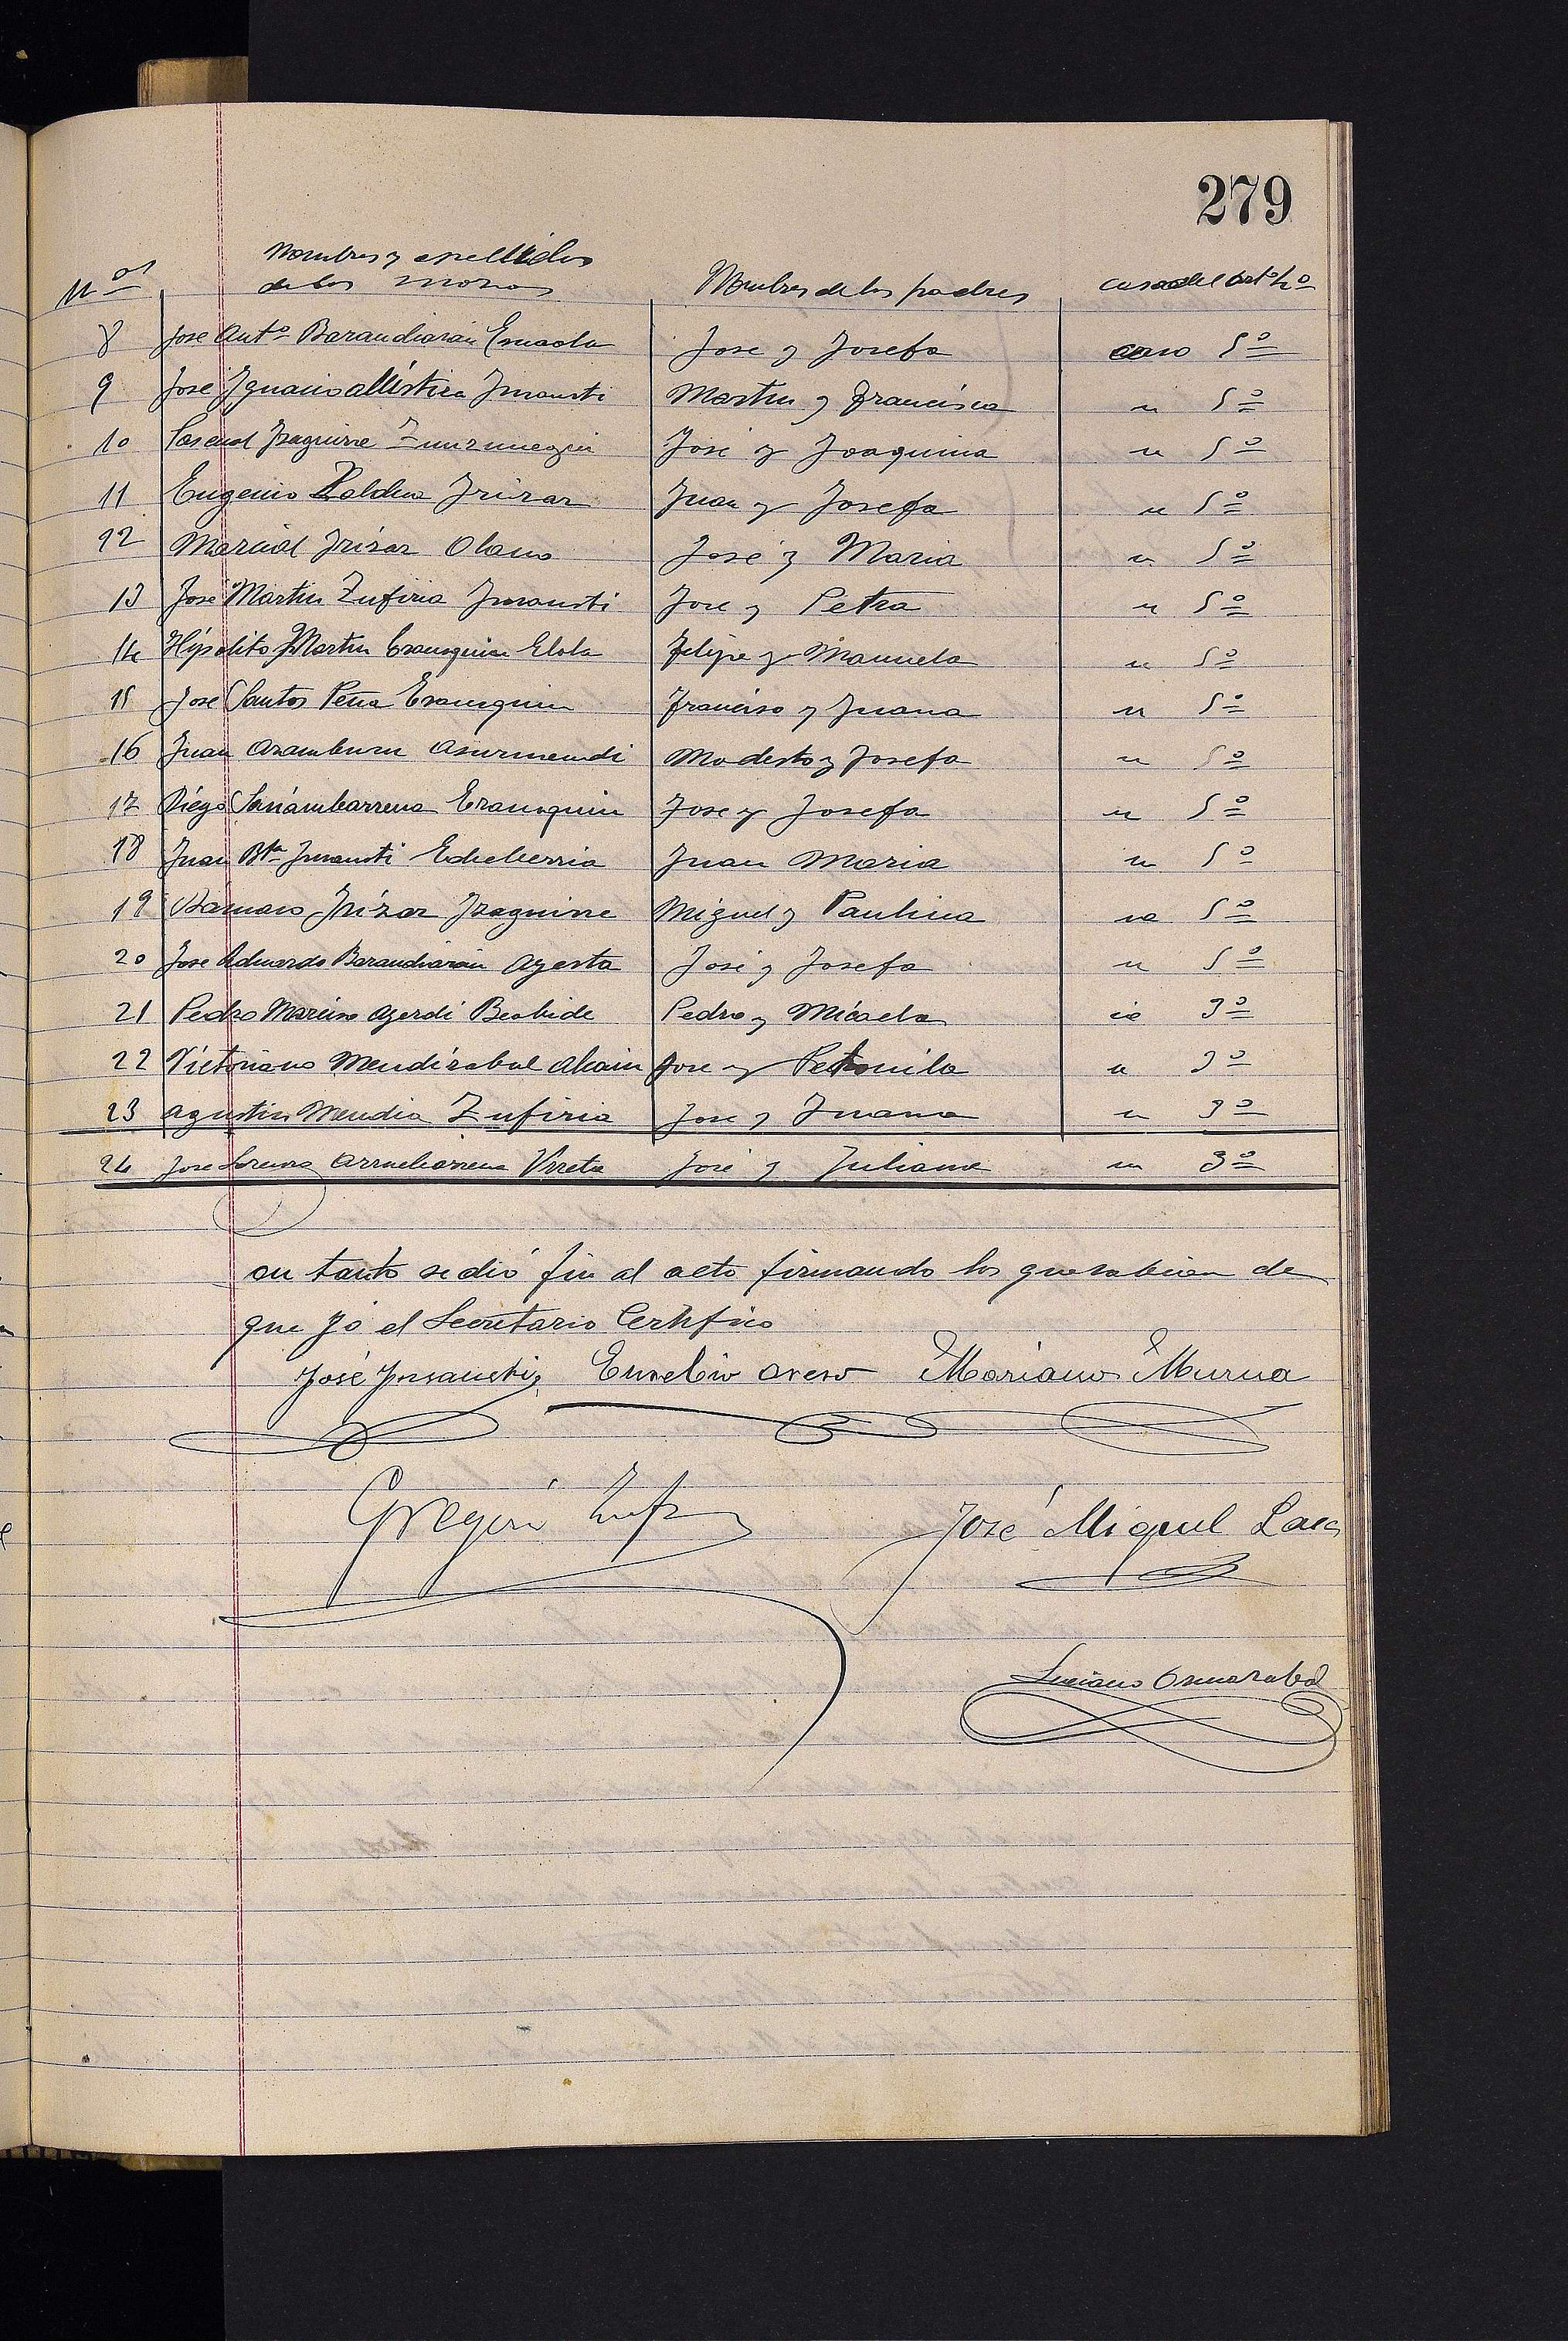 279
Nos Nombres y apellidos de los mozos Nombres de los padres caso del artº 40
8 Jose Antº Barandiarán Esnaola Jose y Josefa caso 5º
9 José Ignacio Múxtica Insausti Martin y Francisca " 5º
10 Pascual Izaguirre José y Joaquina " 5º
11 Eugenio Zaldua Irizar Juan y Josefa " 5º
12 Marcial Irizar Olano José y Maria " 5º
13 José Martin Zufiria Insausti Jose y Petra " 5º
14 Hipólito Martin Eranzquin Elola Felipe y Manuela " 5º
15 José Santos Peña Eranzquin Francisco y Juana " 5º
16 Juan Aramburu Asurmendi Modesto y Josefa " 5º
17 Diego Sarriambarrena Eranzquin Jose y Josefa " 5º
18 Juan Bta Insausti Echeberria Juan Maria " 5º
19 Damaso Irizar Izaguirre Miguel y Paulina " 5º
20 Jose Eduardo Barandiarán Ayesta José y Josefa " 5º
21 Pedro Marcino Ayerdi Beobide Pedro y Micaela " 3º
22 Victoriano Mendizabal Alcain Jose y Petronila " 3º
23 Agustin Mendia Zufiria Jose y Juana " 3º
24 Jose Lorenzo Arruebarrena Urreta José y Juliana " 3º
en tanto se dió fin al acto firmando los que saben de
que yo el Secretario Certifico
José Insausti Eusebio Mariano Murua
Gregorio José Miguel
Luciano Ormazabal